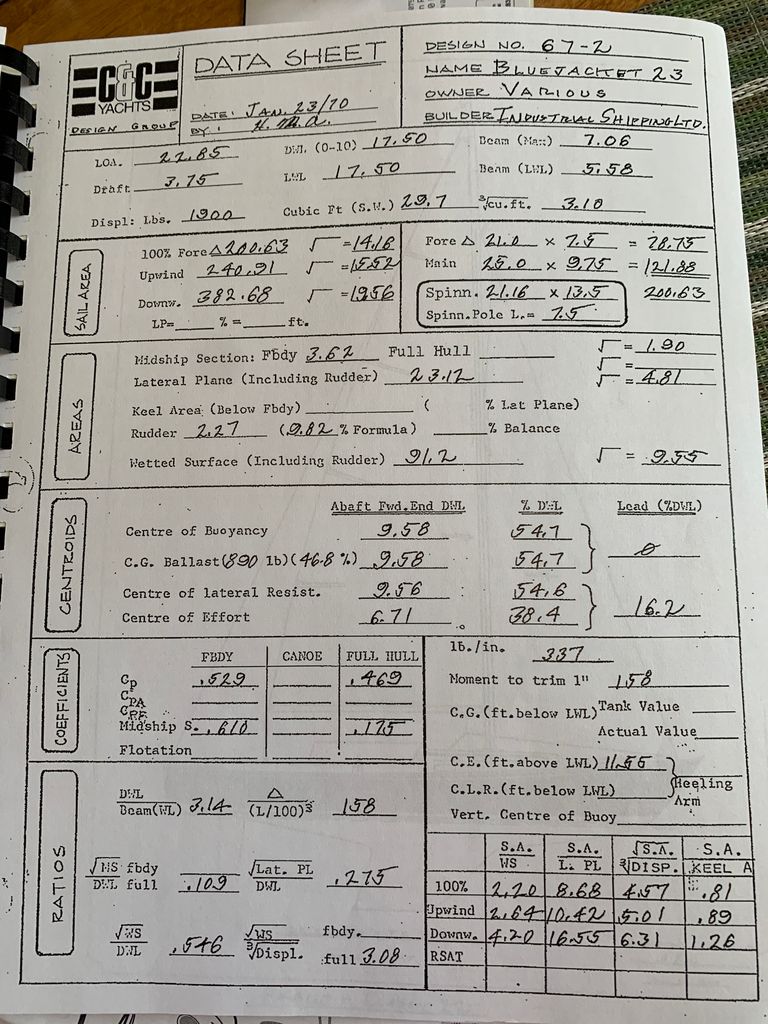 C&C
YACHTS
DESIGN GROUP
DATA SHEET
DATE: JAN. 23/70
BY: H.M.A.
DESIGN NO. 67-2
NAME BLUEJACKET 23
OWNER VARIOUS
BUILDER INDUSTRIAL SHIPPING LTD.
LOA. 22.85 DWL (0-10) 17.50 Beam (Max) 7.06
Draft 3.75 LWL 17.50 Beam (LWL) 5.58
Displ: Lbs. 1900 Cubic Ft (S.W.) 29.7 ∛cu.ft. 3.10
SAIL AREA
100% Fore Δ 200.63 √ = 14.16 Fore Δ 21.0 x 7.5 = 78.75
Upwind 240.91 √ = 15.52 Main 25.0 x 9.75 = 121.88
Downw. 382.68 √ = 19.56 Spinn. 21.16 x 13.5 200.63
LP= % = ft. Spinn.Pole L.= 7.5
AREAS
Midship Section: Fbdy 3.62 Full Hull √ = 1.90
√ =
Lateral Plane (Including Rudder) 23.12 √ = 4.81
Keel Area (Below Fbdy) ( % Lat Plane)
Rudder 2.27 (9.82 % Formula) % Balance
Wetted Surface (Including Rudder) 91.2 √ = 9.55
CENTROIDS
Abaft Fwd.End DWL % DWL Lead (%DWL)
Centre of Buoyancy 9.58 54.7
C.G. Ballast (890 lb)(46.8 %) 9.58 54.7 0
Centre of lateral Resist. 9.56 54.6
Centre of Effort 6.71 38.4 16.2
COEFFICIENTS
FBDY CANOE FULL HULL
Cp .529 .469
CPA
CPF
Midship S. .610 .175
Flotation
lb./in. 337
Moment to trim 1" 158
C.G.(ft.below LWL) Tank Value
Actual Value
C.E.(ft.above LWL) 11.55
C.L.R.(ft.below LWL) Heeling Arm
Vert. Centre of Buoy
RATIOS
DWL / Beam(WL) 3.14 Δ / (L/100)³ 158
√MS fbdy / DWL full .109 √Lat. PL / DWL .275
√WS / DWL .546 √WS / ∛Displ. fbdy. full 3.08
S.A. / WS S.A. / L. PL √S.A. / ∛DISP. S.A. / KEEL A
100% 2.20 8.68 4.57 .81
Upwind 2.64 10.42 5.01 .89
Downw. 4.20 16.55 6.31 1.26
RSAT